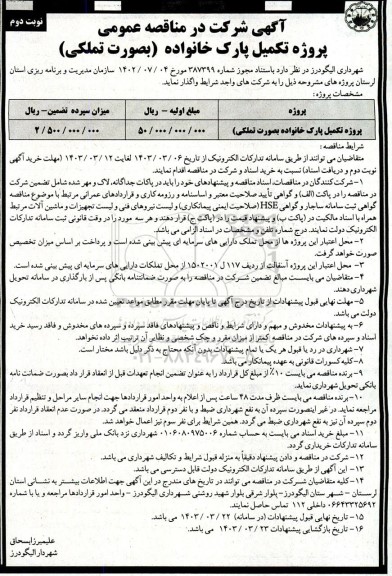 نوبت دوم
آگهی شرکت در مناقصه عمومی
پروژه تکمیل پارک خانواده (بصورت تملکی)
شهرداری الیگودرز در نظر دارد باستناد مجوز شماره ۳۸۷۳۹۹ مورخ ۰۴ / ۰۷ / ۱۴۰۲ سازمان مدیریت و برنامه ریزی استان
لرستان پروژه های مشروحه ذیل را به شرکت های واجد شرایط واگذار نماید.
مشخصات پروژه:
پروژه	مبلغ اولیه – ریال	میزان سپرده تضمین– ریال
پروژه تکمیل پارک خانواده بصورت تملکی)	۵۰/۰۰۰/۰۰۰/۰۰۰	۲/۵۰۰/۰۰۰/۰۰۰
شرایط مناقصه:
متقاضیان می توانند از طریق سامانه تدارکات الکترونیک از تاریخ ۰۶ / ۰۳ / ۱۴۰۳ لغایت ۱۲ / ۰۳ / ۱۴۰۳ (مهلت خرید آگهی
نوبت دوم و دریافت اسناد) نسبت به خرید اسناد و شرکت در مناقصه اقدام نمایند.
۱- شرکت کنندگان در مناقصات، اسناد مناقصه و پیشنهادهای خود را باید در پاکات جداگانه، لاک و مهر شده شامل تضمین شرکت
در مناقصه را در پاکت (الف) و گواهی تأیید صلاحیت معتبر و اساسنامه و رزومه کاری و قراردادهای عمرانی مرتبط با موضوع مناقصه
گواهی ثبت سامانه ساجار و گواهی HSE (صلاحیت ایمنی پیمانکاری) و لیست نیروهای فنی و لیست تجهیزات و ماشین آلات مرتبط
همراه با اسناد مالکیت در (پاکت ب) و پیشنهاد قیمت را در (پاکت ج) قرار دهند و هر سه مورد را در وقت قانونی ثبت سامانه تدارکات
الکترونیک دولت نمایند. درج شماره تلفن و مشخصات در اسناد الزامی می باشد.
۲- محل اعتبار این پروژه ها از محل تملک دارایی های سرمایه ای پیش بینی شده است و پرداخت بر اساس میزان تخصیص
صورت خواهد گرفت.
۳- محل اعتبار این پروژه آسفالت از ردیف ۱۱۷ ل ۱۵۰۲۰۰۱ از محل تملکات دارایی های سرمایه ای پیش بینی شده است.
۴- متقاضیان می بایست مبالغ تضمین شرکت در مناقصه را به صورت ضمانتنامه بانکی پس از بارگذاری در سامانه تحویل
شهرداری دهند.
۵- مهلت نهایی قبول پیشنهادات از تاریخ درج آگهی تا پایان مهلت مقرر مطابق مواعد تعیین شده در سامانه تدارکات الکترونیک
دولت می باشد.
۶- به پیشنهادات مخدوش و مبهم و دارای شرایط و ناقص و پیشنهادهای فاقد سپرده و سپرده های مخدوش و فاقد رسید خرید
اسناد و سپرده های شرکت در مناقصه کمتر از میزان مقرر و چک شخصی و نظایر آن ترتیب اثر داده نخواهد.
۷- شهرداری در رد یا قبول هر یک یا تمام پیشنهادات بدون آنکه محتاج به ذکر دلیل باشد مختار است.
۸- کلیه کسورات قانونی به عهده پیمانکار می باشد
۹- برنده مناقصه می بایست ۱۰٪ از مبلغ کل قرارداد را به عنوان تضمین انجام تعهدات قبل از انعقاد قرارداد به صورت ضمانت نامه
بانکی تحویل شهرداری نماید.
۱۰- برنده مناقصه می بایست ظرف مدت ۴۸ ساعت پس از اعلام به واحد امور قراردادها جهت انجام سایر مراحل و تنظیم قرارداد
مراجعه نماید. در غیر اینصورت سپرده آن به نفع شهرداری ضبط و با نفر دوم قرارداد منعقد می گردد. در صورت عدم انعقاد قرارداد نفر
دوم سپرده آن نیز به نفع شهرداری ضبط می گردد. همین شرایط برای نفر سوم نیز اعمال خواهد شد.
۱۱- مبلغ خرید اسناد می بایست به حساب شماره ۰۱۰۶۰۸۰۹۷۵۰۰۶ شهرداری نزد بانک ملی واریز گردد و اسناد از طریق
سامانه تدارکات خریداری گردد.
۱۲- شرکت در مناقصه و دادن پیشنهاد دقیقا به منزله قبول شرایط و تکالیف شهرداری می باشد.
۱۳- این آگهی از طریق سامانه تدارکات الکترونیک دولت قابل دسترسی می باشد.
۱۴- کلیه متقاضیان شرکت در مناقصه می توانند در تاریخ های مندرج در این آگهی جهت اطلاعات بیشتر به نشانی استان
لرستان – شهرستان الیگودرز – بلوار شرقی بلوار شهید روشنی شهرداری الیگودرز – واحد امور قراردادها مراجعه و یا با شماره
۰۶۶۴۳۳۲۵۶۹۲ داخلی ۱۱۲ تماس حاصل نمایند.
۱۵- تاریخ نهایی قبول پیشنهادات (در سامانه) ۲۲ / ۰۳ / ۱۴۰۳ می باشد.
۱۶- تاریخ بازگشایی پیشنهادات ۲۳ / ۰۳ / ۱۴۰۳ می باشد.
علیمیرزا اسحاق
شهردار الیگودرز